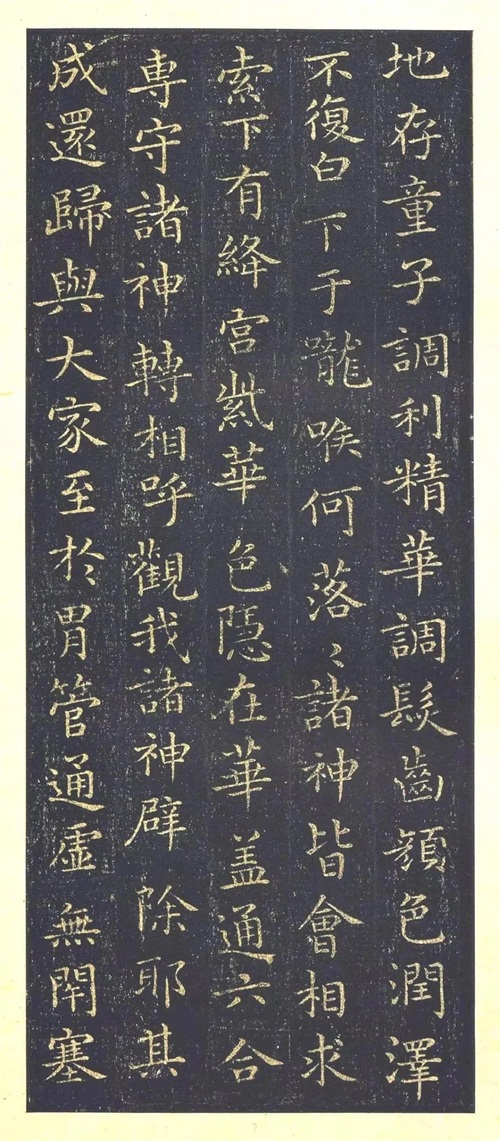 地存童子調利精華調髮齒顏色潤澤
不復白下于嚨喉何落〻諸神皆會相求
索下有絳宮紫華色隱在華盖通六合
專守諸神轉相呼觀我諸神辟除耶其
成還歸與大家至於胃管通虛無閉塞